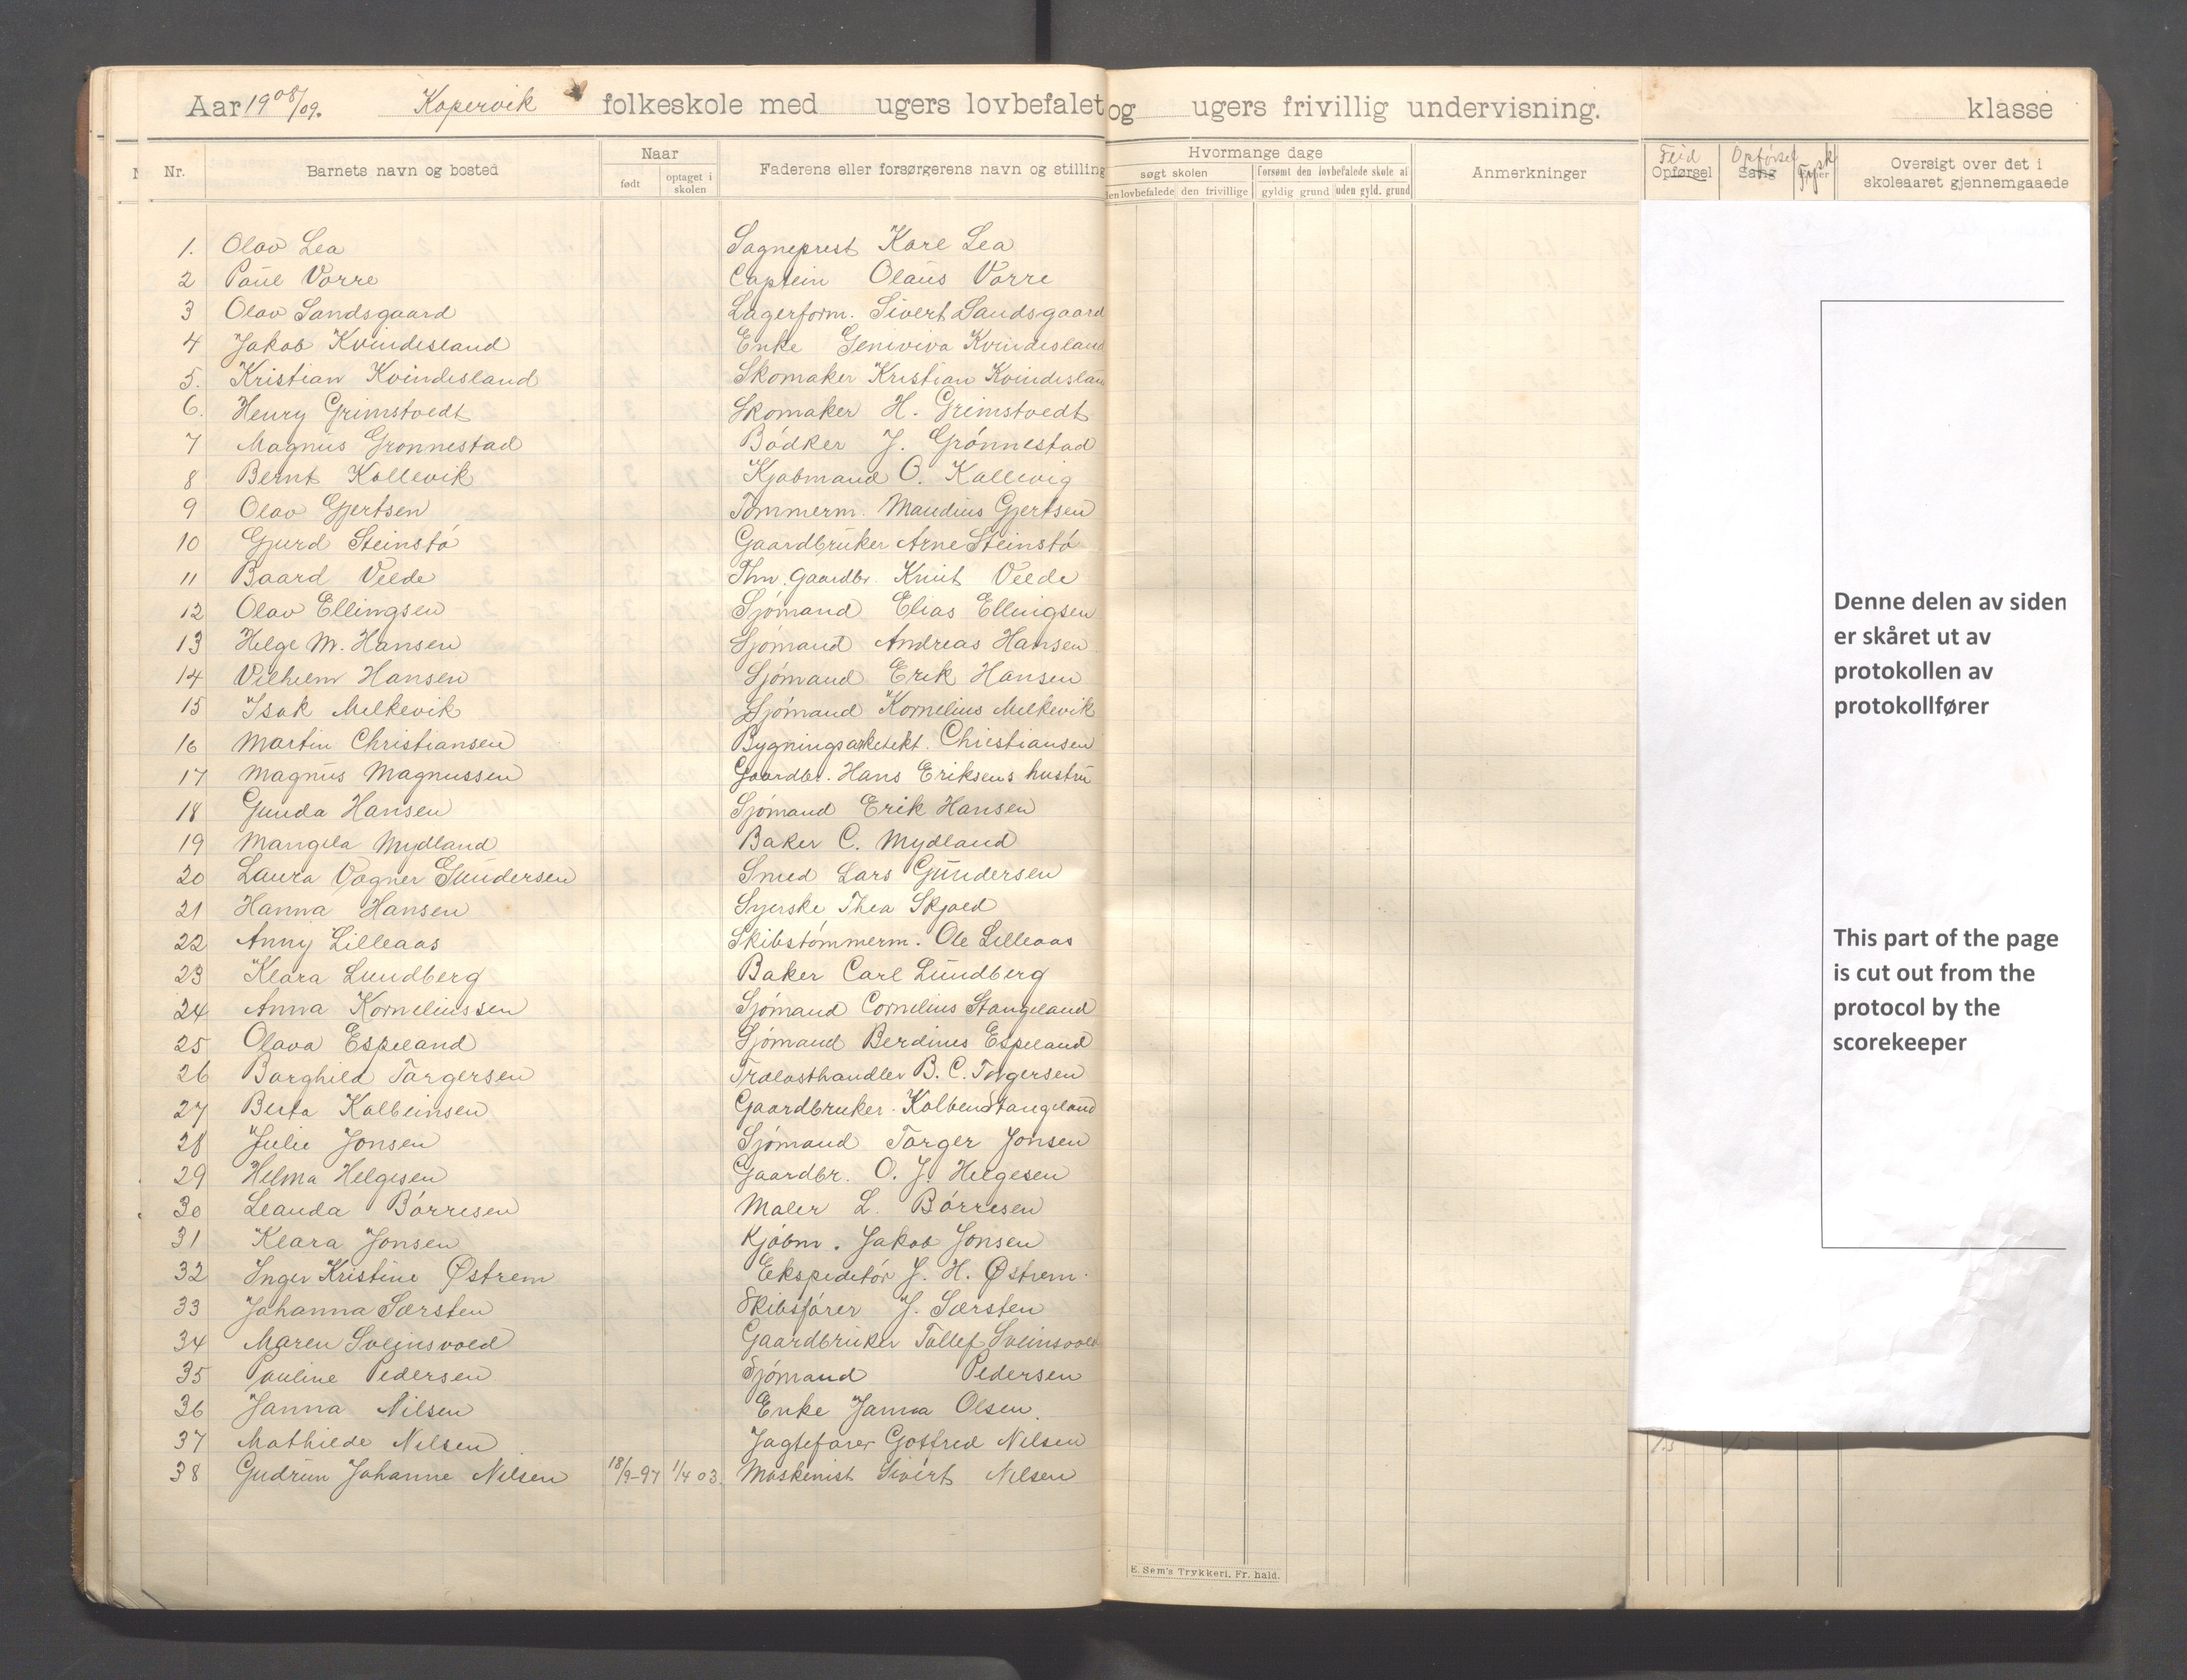 Aar 1908/09. Kopervik folkeskole med ugers lovbefalet og ugers frivillig undervisning. klasse
Nr. Barnets navn og bosted Naar født optaget i skolen Faderens eller forsørgerens navn og stilling Hvormange dage søgt skolen den lovbefalede den frivillige forsømt den lovbefalede skole af gyldig grund uden gyld. grund Anmerkninger Flid Opførsel Opførsel Sang Oversigt over det i skoleaaret gjennemgaaede
1. Olav Lea Sogneprest Kore Lea
2 Paul Vorre Captein Olaus Vorre
3 Olav Sandsgaard Lagerform. Sivert Sandsgaard
4 Jakob Kvindesland Enke Geniviva Kvindesland
5. Kristian Kvindesland Skomaker Kristian Kvindesland
6. Henry Grimstvedt Skomaker H. Grimstvedt
7 Magnus Gronnestad Bódker J. Grónnestad
8 Bernt Kallevik Kjøbmand O. Kallevig
9 Olav Gjertsen Tømmerm. Maudius Gjertsen
10 Gjurd Steinstó Gaardbruker Arne Steinstó
11 Baard Velde Thv. Gaardbr. Knut Velde
12 Olav Ellingsen Sjómand Elias Ellingsen
13 Helge M. Hansen Sjómand Andreas Hansen
14 Vilhelm Hansen Sjómand Erik Hansen
15 Isak Melkevik Sjómand Kornelius Melkevik
16 Martin Christiansen Bygningsarkitekt. Christiansen
17 Magnus Magnussen Gaardbr. Hans Eriksens hustru
18 Gunda Hansen Sjómand Erik Hansen
19 Mangela Mydland Baker C. Mydland
20 Laura Vogner Gundersen Smed Lars Gundersen
21 Hanna Hansen Syerske Thea Skjold
22 Anny Lilleaas Skibstómmerm. Ole Lilleaas
23 Klara Lundberg Baker Carl Lundberg
24 Anna Korneliussen Sjómand Cornelius Stangeland
25 Olava Espeland Sjómand Berdinus Espeland
26 Borghild Torgersen Trælasthandler B. C. Torgersen
27 Berta Kolbeinsen Gaardbruker. Kolben Stangeland
28 Julie Jonsen Sjómand Torger Jonsen
29 Helma Helgesen Gaardbr. O. J. Helgesen
30 Leanda Bórresen Maler L. Bórresen
31 Klara Jonsen Kjóbm. Jakob Jonsen
32 Inger Kristine Østrem Ekspeditór J. H. Østrem.
33 Johanna Særsten Skibsfórer J. Særsten
34 Maren Sveinsvold Gaardbruker Tollef Sveinsvold
35 Pauline Pedersen Sjómand Pedersen
36 Janna Nilsen Enke Janna Olsen.
37 Mathilde Nilsen Jagtefører Gotfred Nilsen
38 Gudrun Johanne Nilsen 18/9-97 1/4 03. Maskinist Sivert Nilsen
E. Sem's Trykkeri, Fr. hald.
Denne delen av siden
er skåret ut av
protokollen av
protokollfører
This part of the page
is cut out from the
protocol by the
scorekeeper